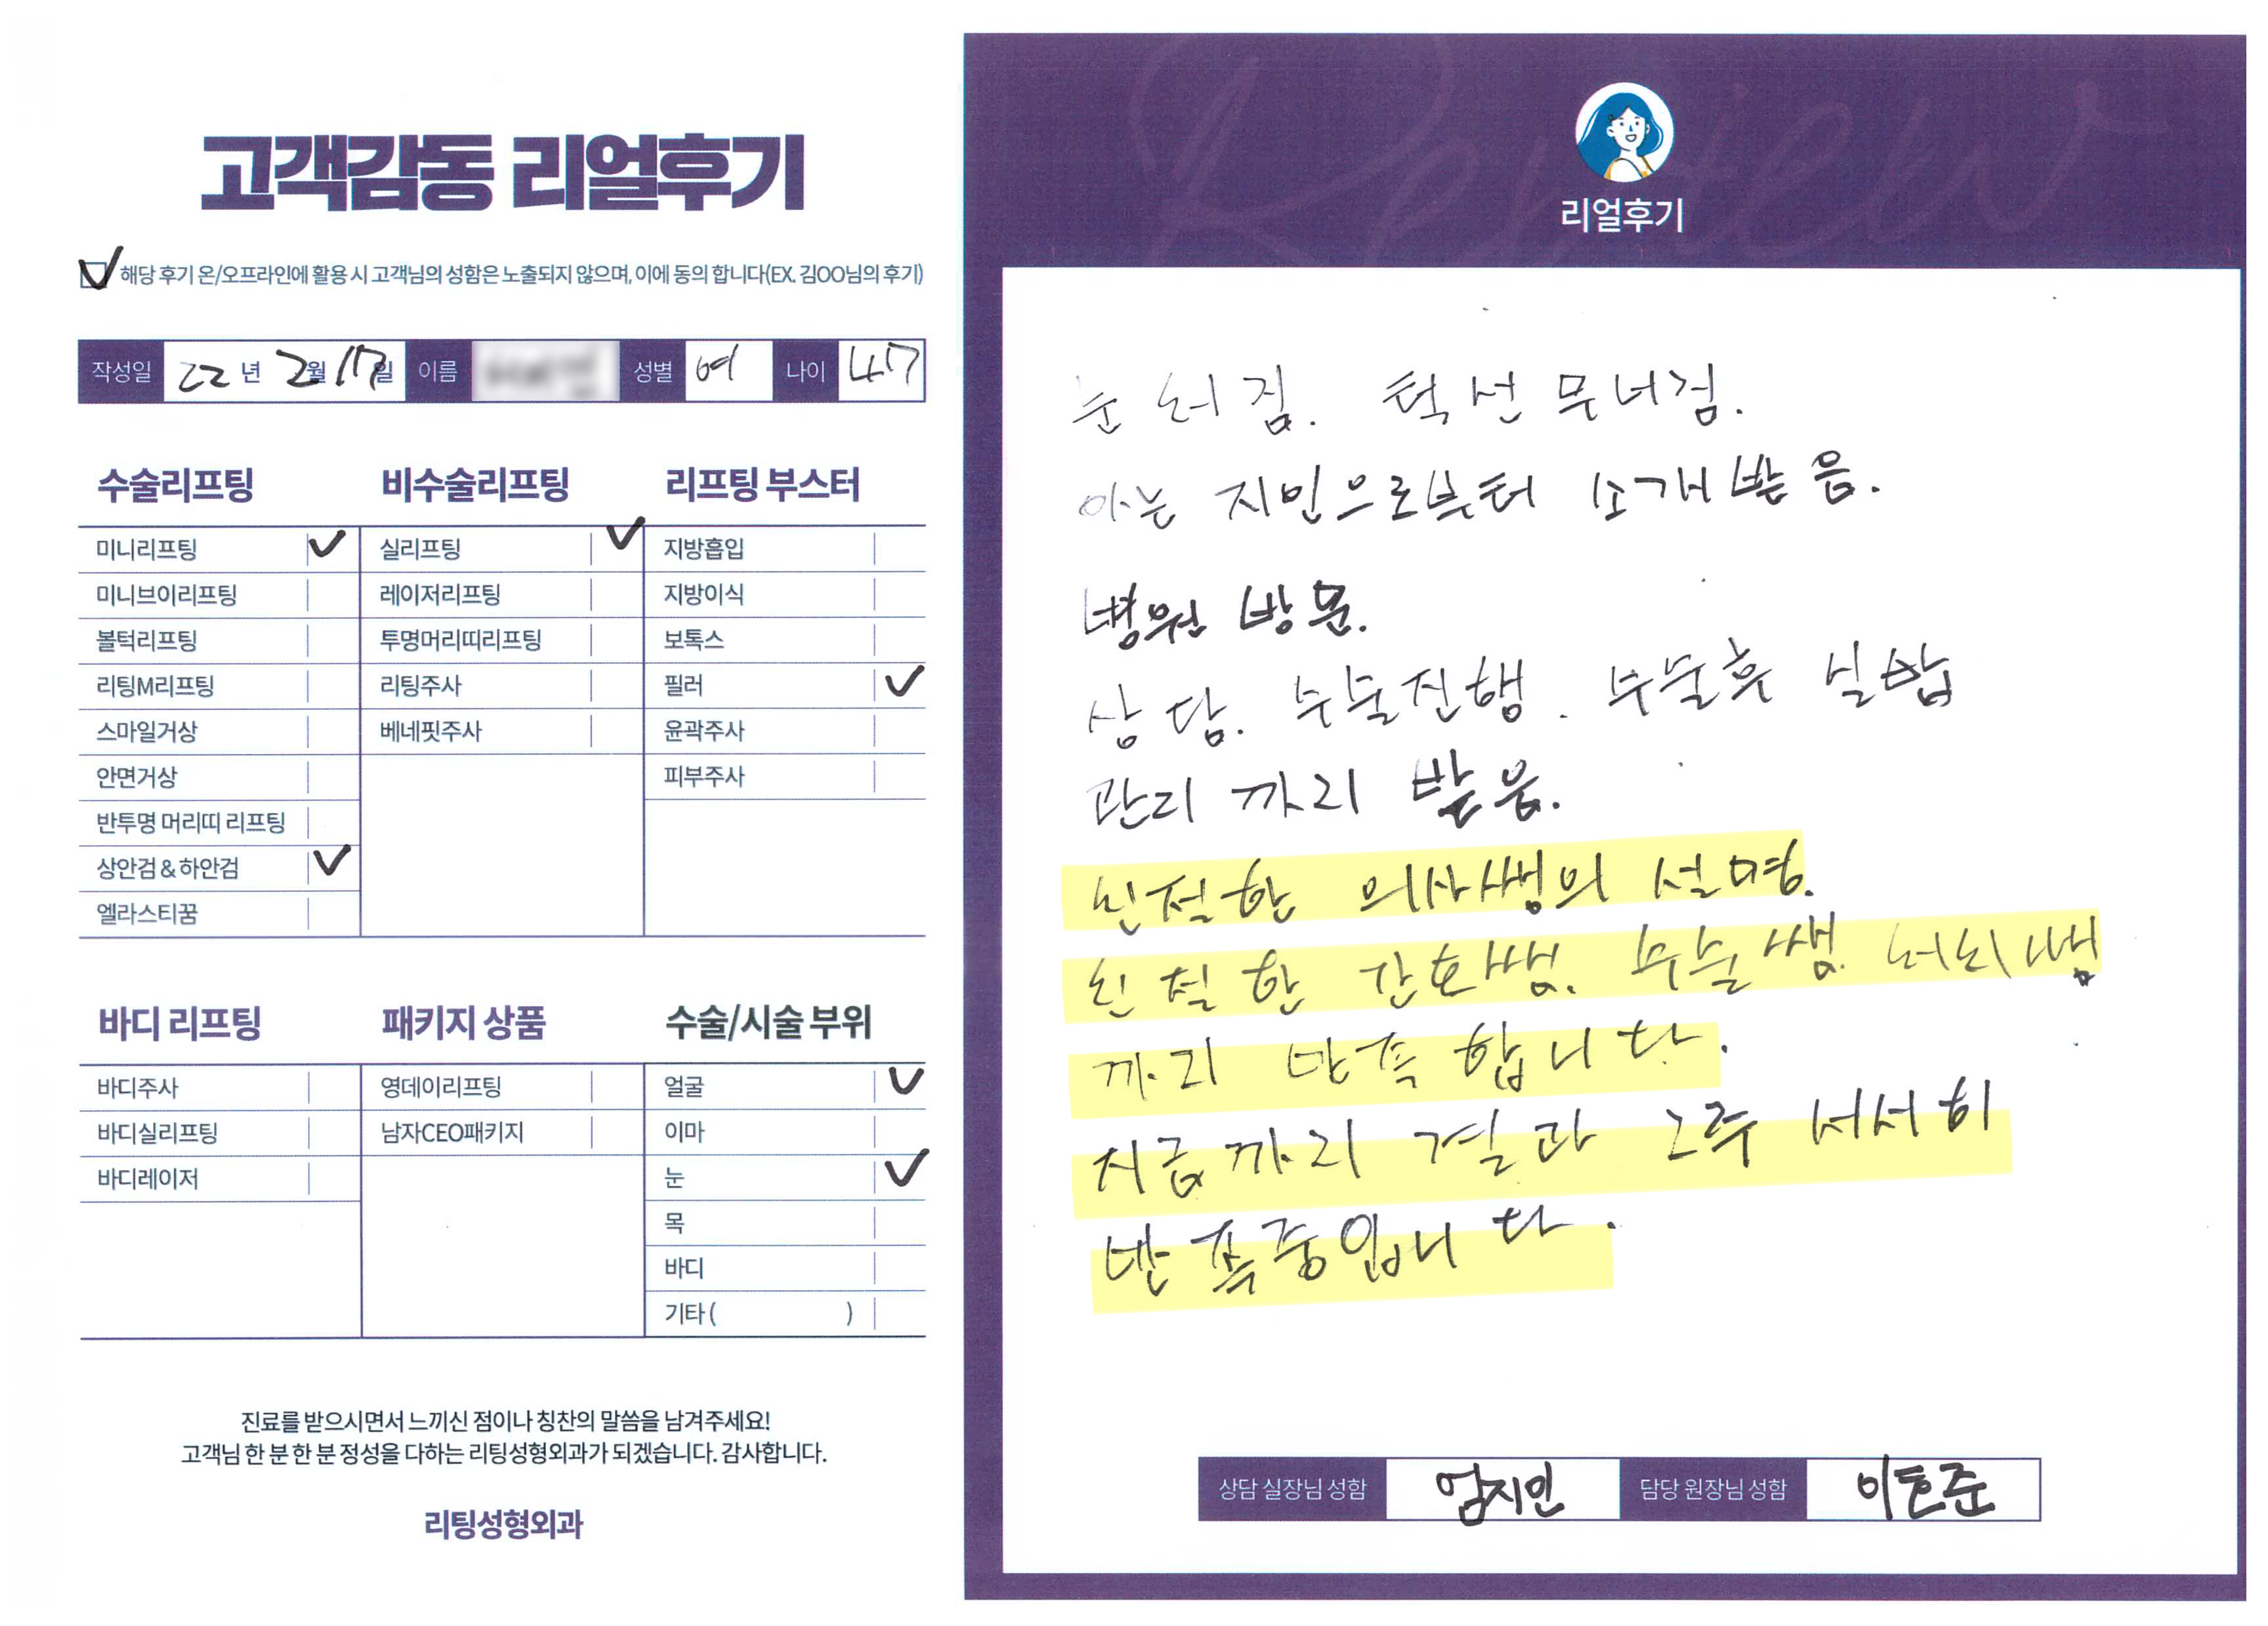 고객감동 리얼후기
해당 후기 온/오프라인에 활용 시 고객님의 성함은 노출되지 않으며, 이에 동의 합니다(EX. 김OO님의 후기)
작성일 22년 2월 17일 이름 성별 여 나이 47
수술리프팅
미니리프팅
미니브이리프팅
볼턱리프팅
리팅M리프팅
스마일거상
안면거상
반투명 머리띠 리프팅
상안검 & 하안검
엘라스티꿈
비수술리프팅
실리프팅
레이저리프팅
투명머리띠리프팅
리팅주사
베네핏주사
리프팅 부스터
지방흡입
지방이식
보톡스
필러
윤곽주사
피부주사
바디 리프팅
바디주사
바디실리프팅
바디레이저
패키지 상품
영데이리프팅
남자CEO패키지
수술/시술 부위
얼굴
이마
눈
목
바디
기타 ( )
진료를 받으시면서 느끼신 점이나 칭찬의 말씀을 남겨주세요!
고객님 한 분 한 분 정성을 다하는 리팅성형외과가 되겠습니다. 감사합니다.
리팅성형외과
Review
리얼후기
눈 쳐짐. 턱선 무너짐.
아는 지인으로부터 소개받음.
병원 방문.
상담. 수술진행. 수술후 실밥
관리 까지 받음.
친절한 의사쌤의 설명.
친절한 간호쌤. 수술쌤.
까지 만족합니다.
지금까지 결과 2주 서서히
만족중입니다.
상담 실장님 성함 엄지인 담당 원장님 성함